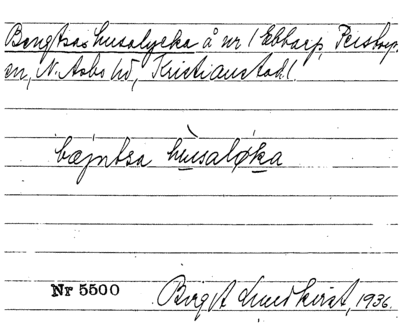 Bengtsas husalycka å nr 1 Ebbarp, Perstorps
sn, N. Åsbo hd, Kristianstads l.
bæjntsa hùsaløka
Nr 5500 Birgit Lundkvist, 1936.